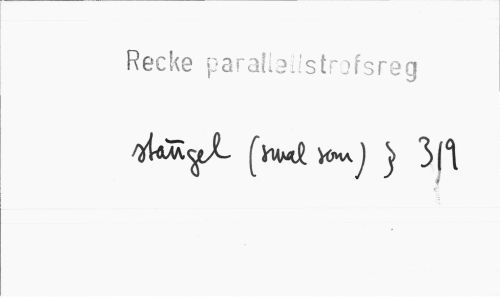 Recke parallellstrofsreg
stängel (smal som) } 3/9